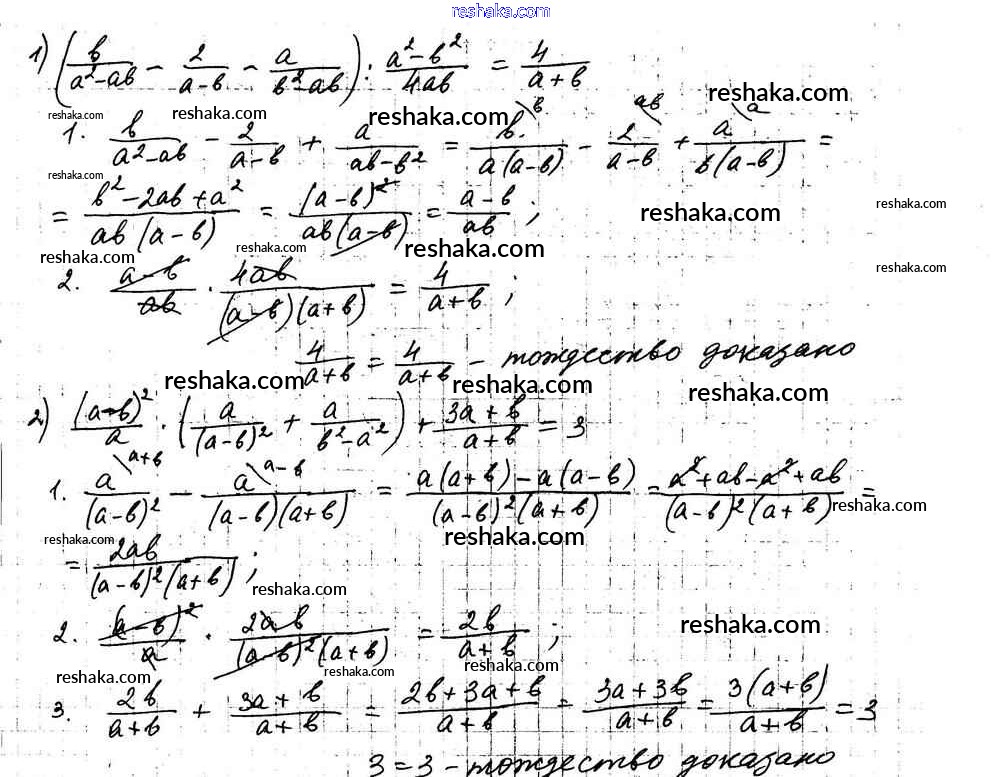 reshaka.com
1) (b/(a²-ab) - 2/(a-b) - a/(b²-ab)) : (a²-b²)/(4ab) = 4/(a+b)
reshaka.com
reshaka.com reshaka.com reshaka.com
1. b/(a²-ab) - 2/(a-b) + a/(ab-b²) = b\b/(a(a-b)) - 2\ab/(a-b) + a\a/(b(a-b)) =
reshaka.com
= (b²-2ab+a²)/(ab(a-b)) = (a-b)²/(ab(a-b)) = (a-b)/(ab) ;
reshaka.com reshaka.com
reshaka.com reshaka.com reshaka.com
reshaka.com
2. (a-b)/(ab) · 4ab/((a-b)(a+b)) = 4/(a+b) ;
4/(a+b) = 4/(a+b) - тождество доказано
reshaka.com reshaka.com reshaka.com
2) (a-b)²/a · (a/(a-b)² + a/(b²-a²)) + (3a+b)/(a+b) = 3
1. a\a+b/(a-b)² - a\a-b/((a-b)(a+b)) = (a(a+b)-a(a-b))/((a-b)²(a+b)) = (a²+ab-a²+ab)/((a-b)²(a+b)) =
reshaka.com
reshaka.com reshaka.com
= 2ab/((a-b)²(a+b)) ;
reshaka.com
2. (a-b)²/a · 2ab/((a-b)²(a+b)) = 2b/(a+b) ;
reshaka.com
reshaka.com reshaka.com reshaka.com
3. 2b/(a+b) + (3a+b)/(a+b) = (2b+3a+b)/(a+b) = (3a+3b)/(a+b) = 3(a+b)/(a+b) = 3
3=3 - тождество доказано